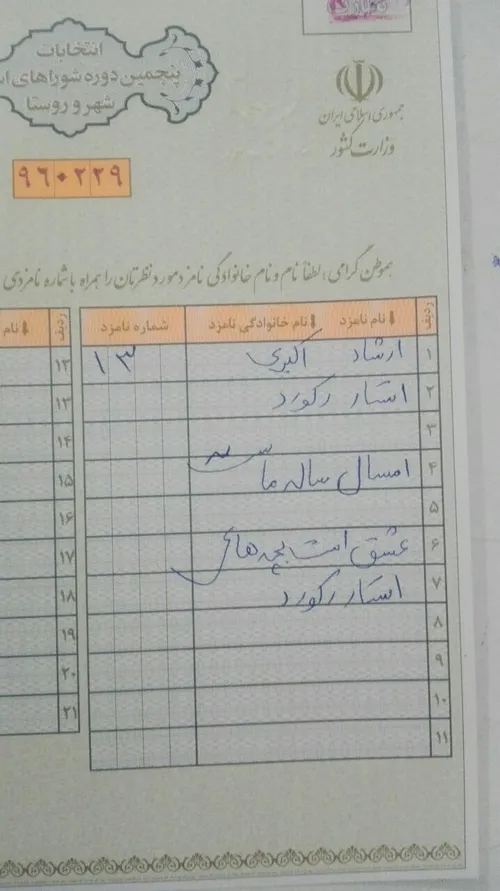 انتخابات
پنجمین دوره شوراهای
شهر و روستا
جمهوری اسلامی ایران
وزارت کشور
۹۶۰۲۲۹
هموطن گرامی، لطفاً نام و نام خانوادگی نامزد مورد نظرتان را همراه با شماره نامزدی
ردیف نام نامزد نام خانوادگی نامزد شماره نامزد ردیف نام
۱ ارشاد اکبری ۱۳ ۱۲
۲ استار رکورد ۱۳
۳ ۱۴
۴ امسال ساله ما ۱۵
۵ ۱۶
۶ عشق است بچه های ۱۷
۷ استار رکورد ۱۸
۸ ۱۹
۹ ۲۰
۱۰ ۲۱
۱۱